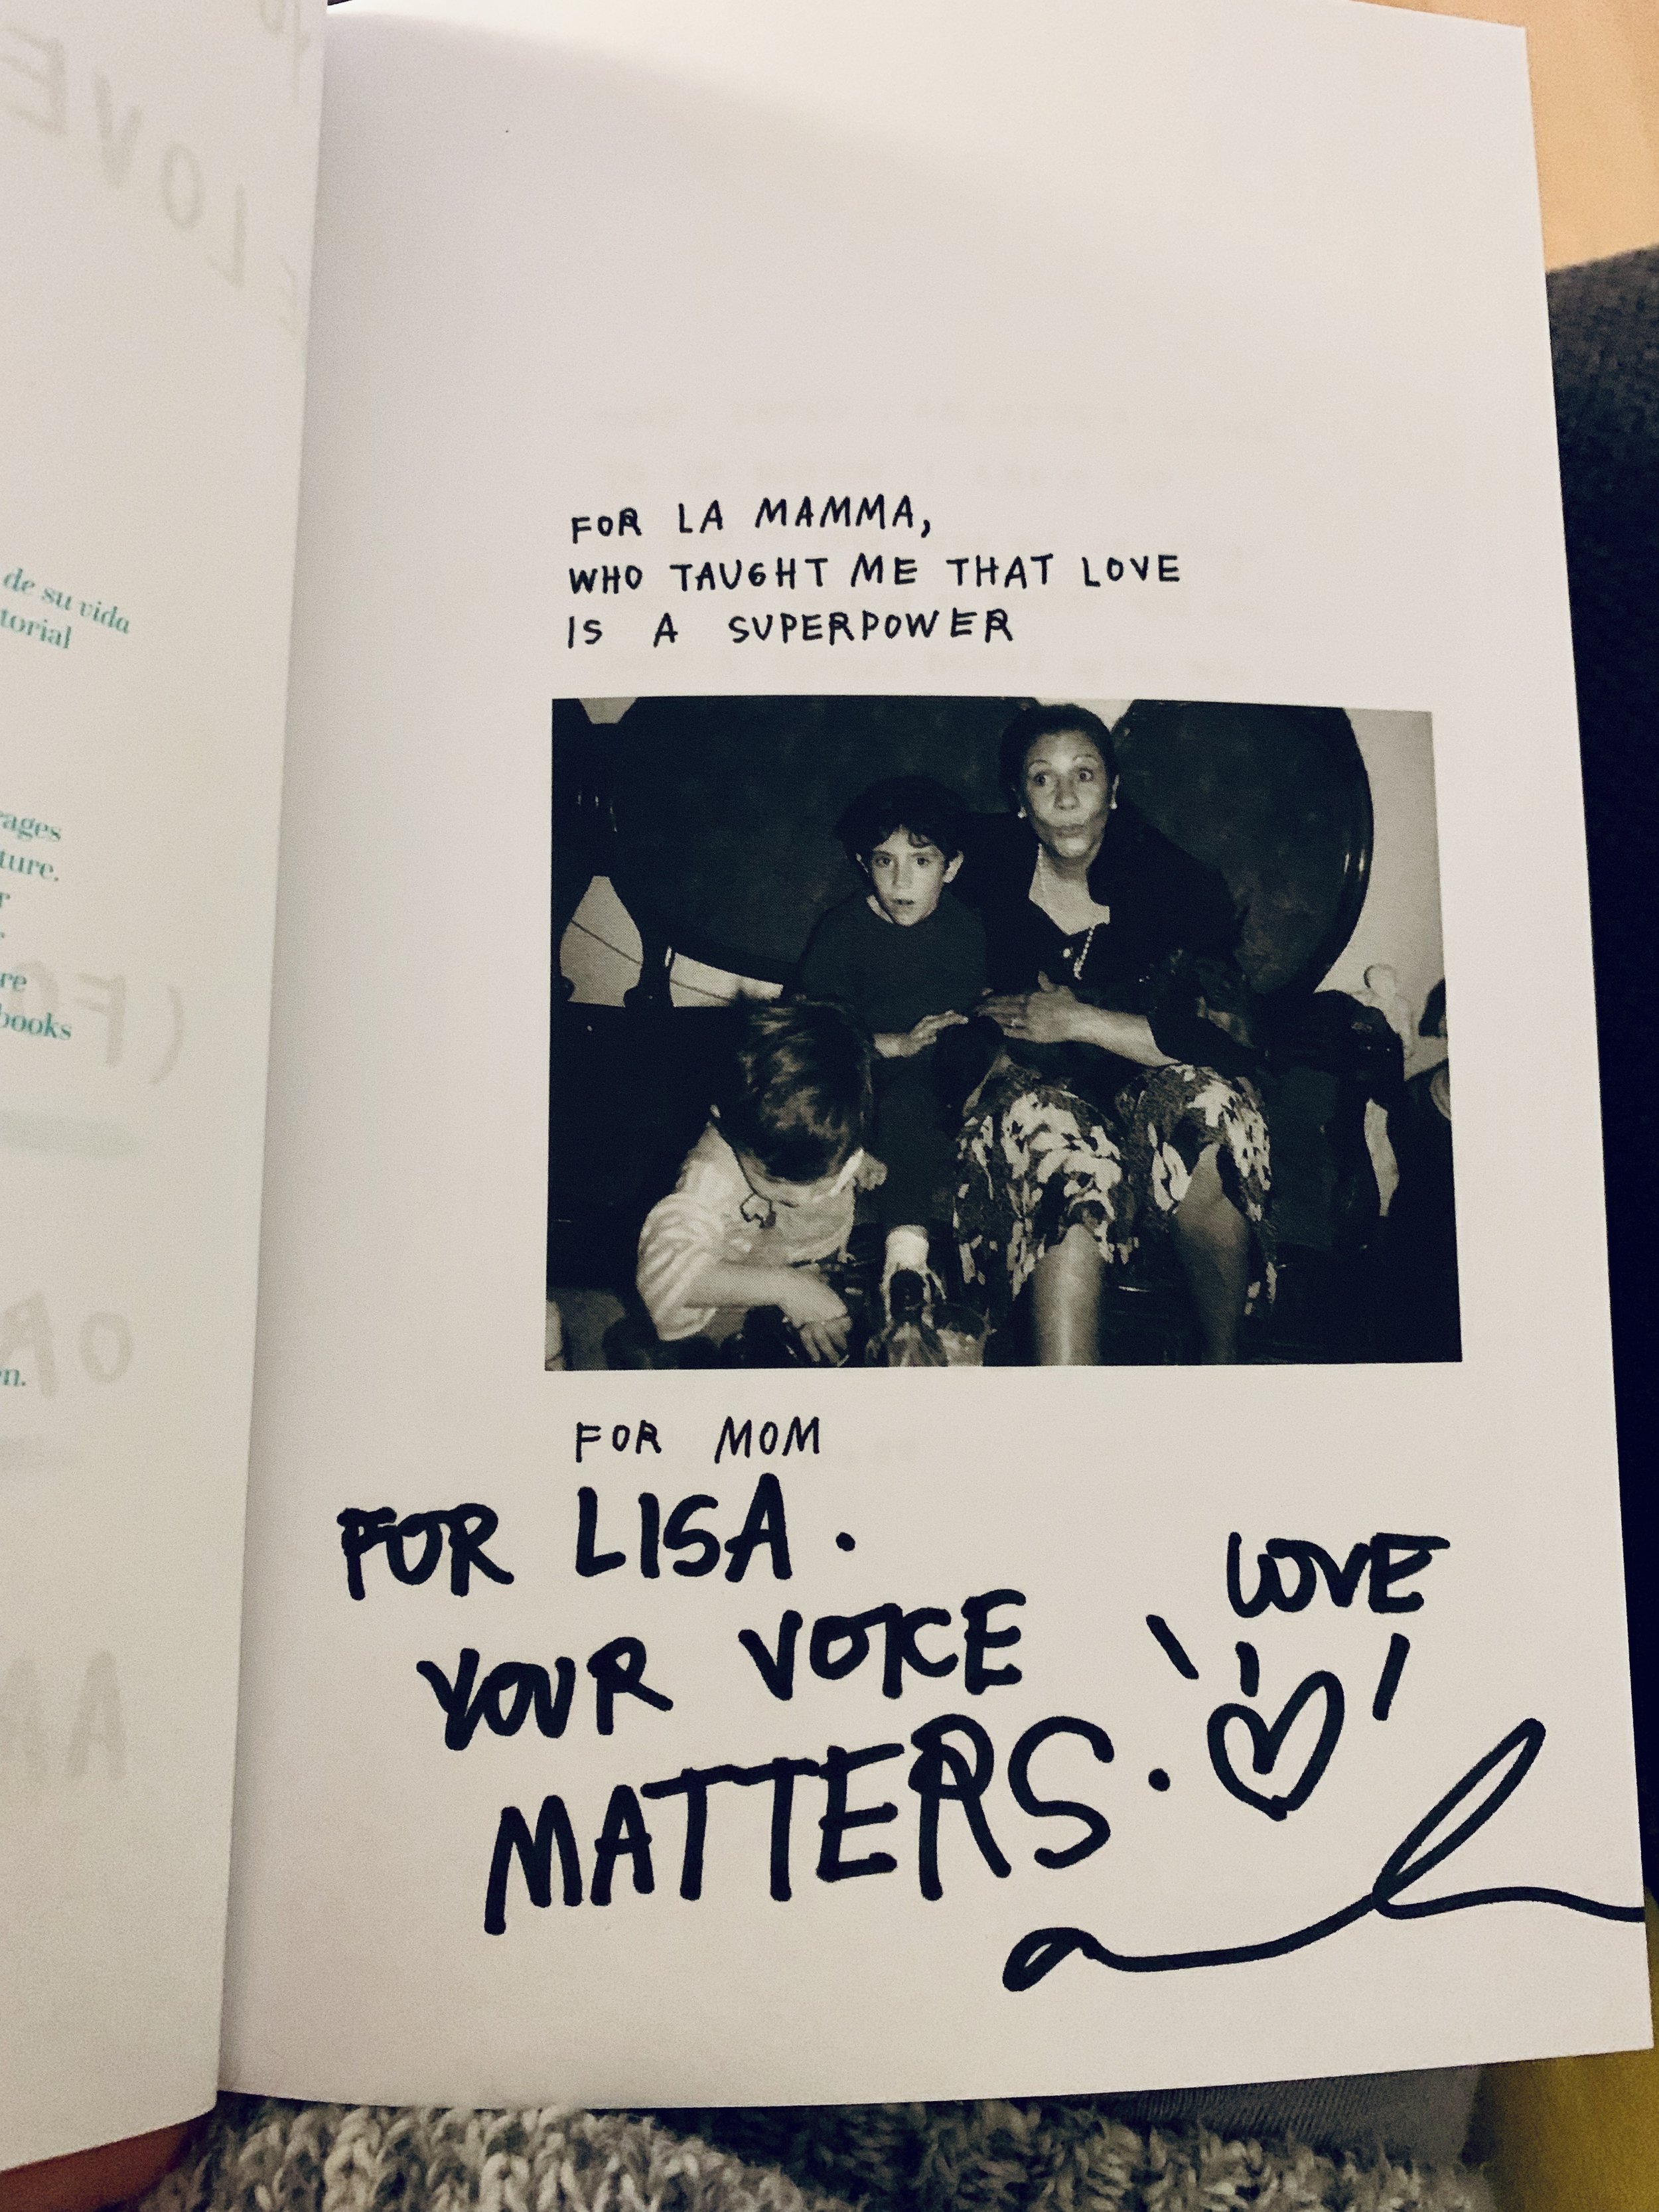 de su vida
torial
ages
ture.
r
re
books
n.
FOR LA MAMMA,
WHO TAUGHT ME THAT LOVE
IS A SUPERPOWER
FOR MOM
FOR LISA.
YOUR VOICE
MATTERS.
LOVE